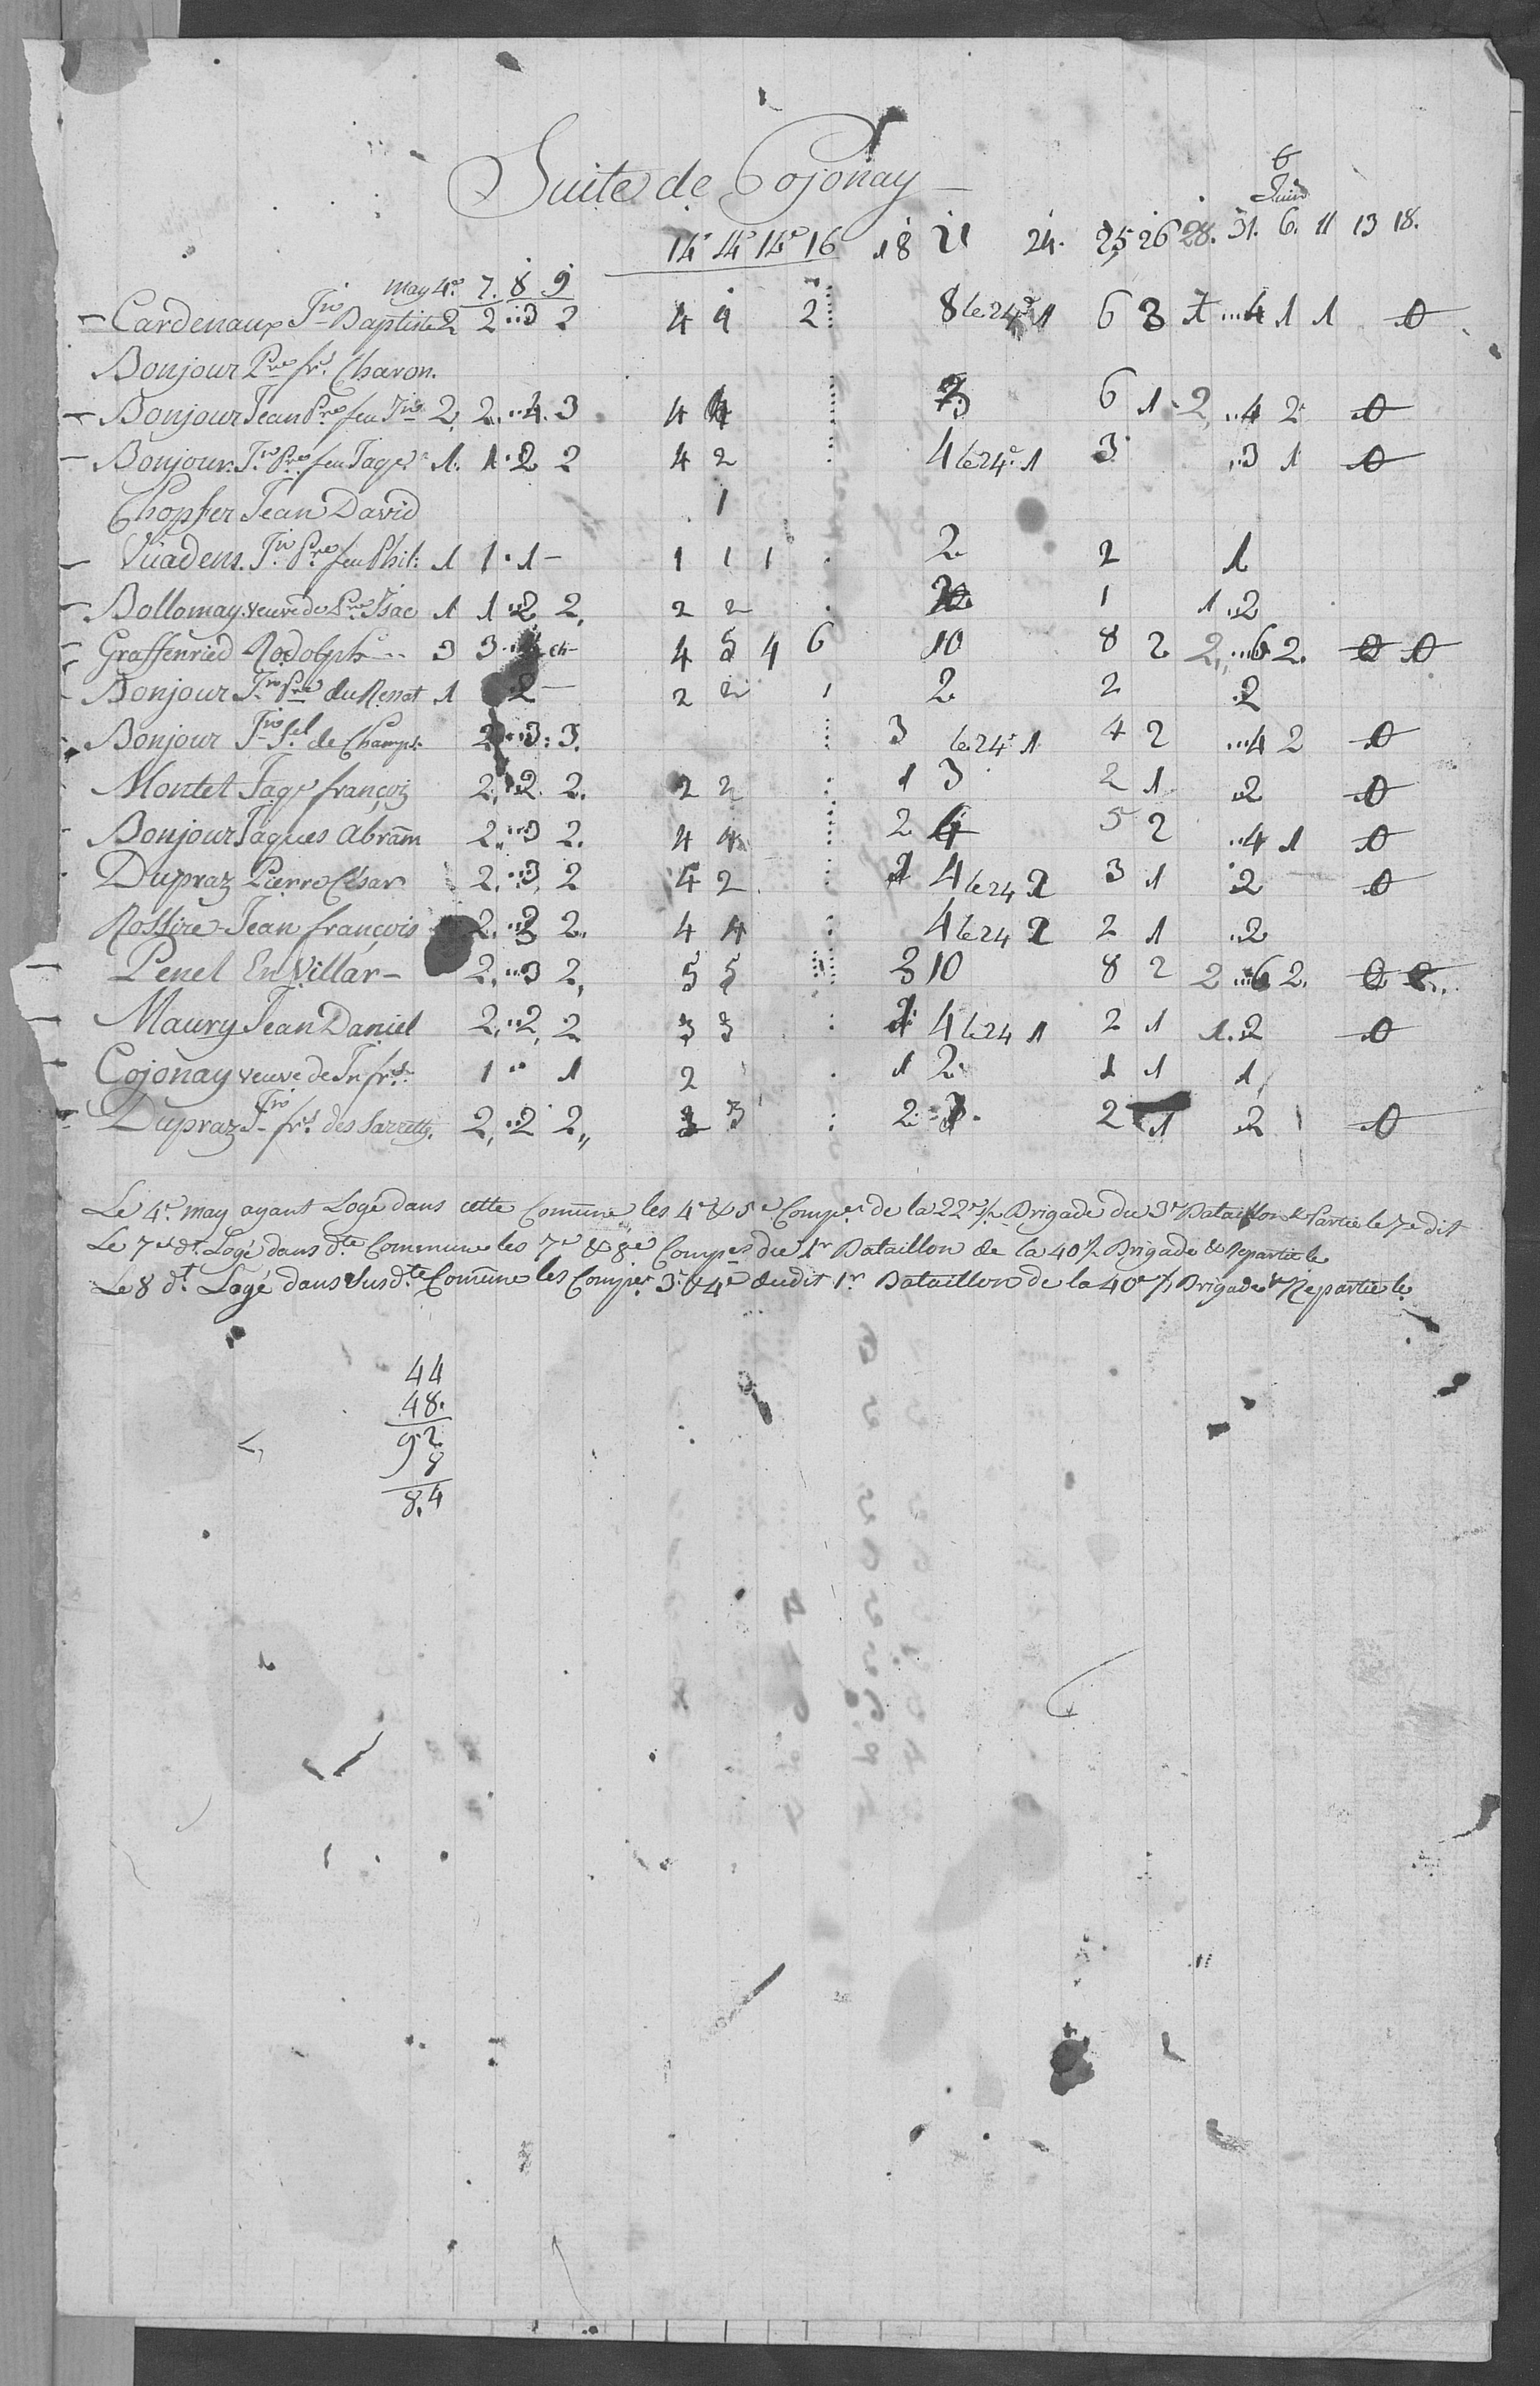 Suite de Cojonay
6
Juin
14e 14e 14e 16 18 21 24. 25 26 28. 31. 6. 11 13 18.
may 4e 7. 8 9
Cardenaux Jn Baptiste 2 2 3 2 4 4 2 8 le 24e 1 6 3 1 4 1 1 0
Bonjour Pre frs Charon.
Bonjour Jean Pre feu Jn 2, 2. 4. 3 4 4 6 1 2 4 2 0
Bonjour Jn Pre feu Jaqs 1. 1. 2 2 4 2 4 le 24e 1 3 3 1 0
Chopfer Jean David 1
Vüadens. Jn Pre feu Phil: 1 1. 1 – 1 1 1 2 2 1
Bollomay veuve de Pre Isac 1 1 2 2, 2 2 1 1 2
Graffenried Rodolph 3 3 4 5 4 6 10 8 2 2 6 2. 0 0
Bonjour Jn Pre du Ressat 1 2 – 2 2 1 2 2 2
Bonjour Jn Sel de Champ: 2 3: 3. 3 le 24e 1 4 2 4 2 0
Montet Jaqe françoi 2. 2. 2. 2 2 1 3 2 1 2 0
Bonjour Jaques Abram 2. 3 2. 4 4 2 4 5 2 4 1 0
Dupraz Pierre César 2. 3 2 4 2 1 4 le 24 2 3 1 2 0
Rossire Jean françois 2. 3 2. 4 4 4 le 24 2 2 1 2
Penel En Villar – 2. 3 2, 5 5 3 10 8 2 2 6 2. 0 0
Maury Jean Daniel 2. 2, 2 3 3 1 4 le 24 1 2 1 1. 2 0
Cojonay veuve de Jn frs 1 1 2 1 2 1 1 1
Dupraz Jn frs des Sarretts. 2, 2 2,, 3 3 2 3. 2 1 2 0
Le 4e may ayant Logé dans cette Comune les 4e & 5e Compes de la 22e ½ Brigade du 3e Bataillon & Partie le 7e dit
Le 7e dt. Logé dans dte Commune les 7e & 8e Compes du 1r Bataillon de la 40 ½ Brigade & Repartie le
Le 8 dt Logé dans Susdte Comune les Compes 3e & 4e dudit 1r Bataillon de la 40e ½ Brigade & Repartie le
44
48.
92
8
8.4